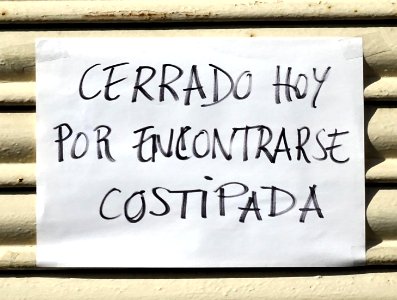 CERRADO HOY
POR ENCONTRARSE
COSTIPADA